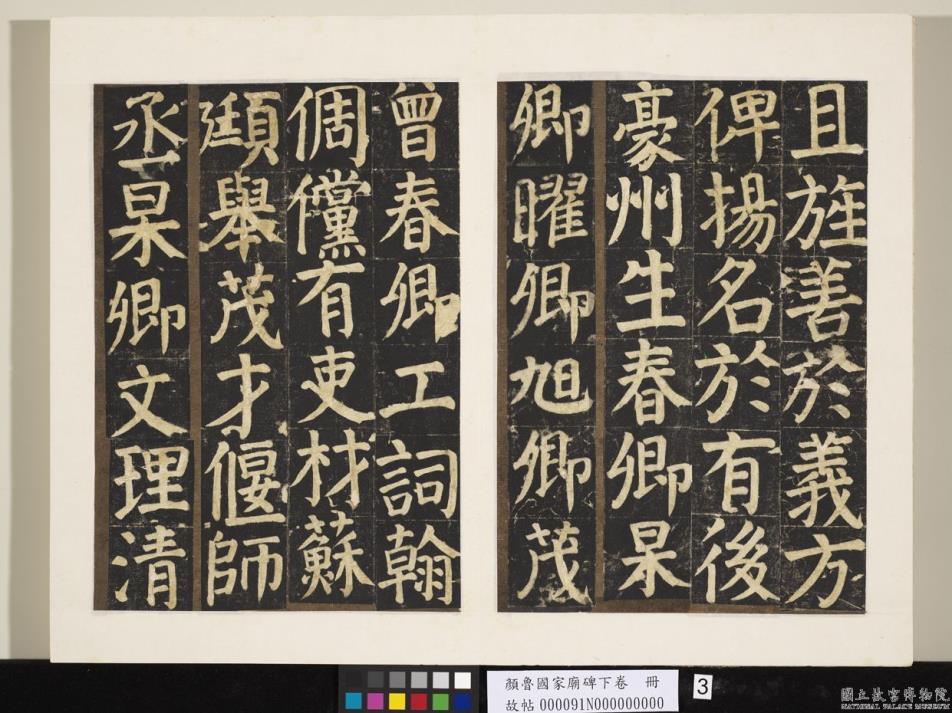 且旌善於義方
俾揚名於有後
豪州生春卿杲
卿曜卿旭卿茂
曾春卿工詞翰
倜儻有吏材蘇
頲舉茂才偃師
丞杲卿文理清
顏魯國家廟碑下卷 冊
故帖000091N000000000
3
國立故宮博物院
NATIONAL PALACE MUSEUM